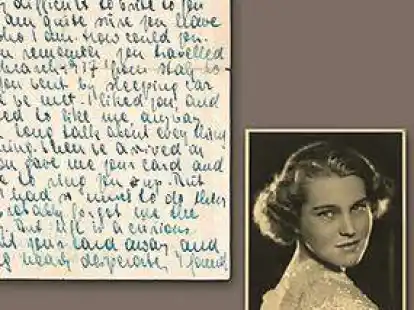 difficult to write to you
am quite sure you have
who I am. How could you.
remember you travelled
March 1937 from
you went by sleeping car
be met. I liked you, and
to like me, anyway
long talk about every thing
we arrived in
you gave me your card and
to ring you up. But
had so much to do there
forgot me the
But life is a curious
your card away and
nearly desperate, I found